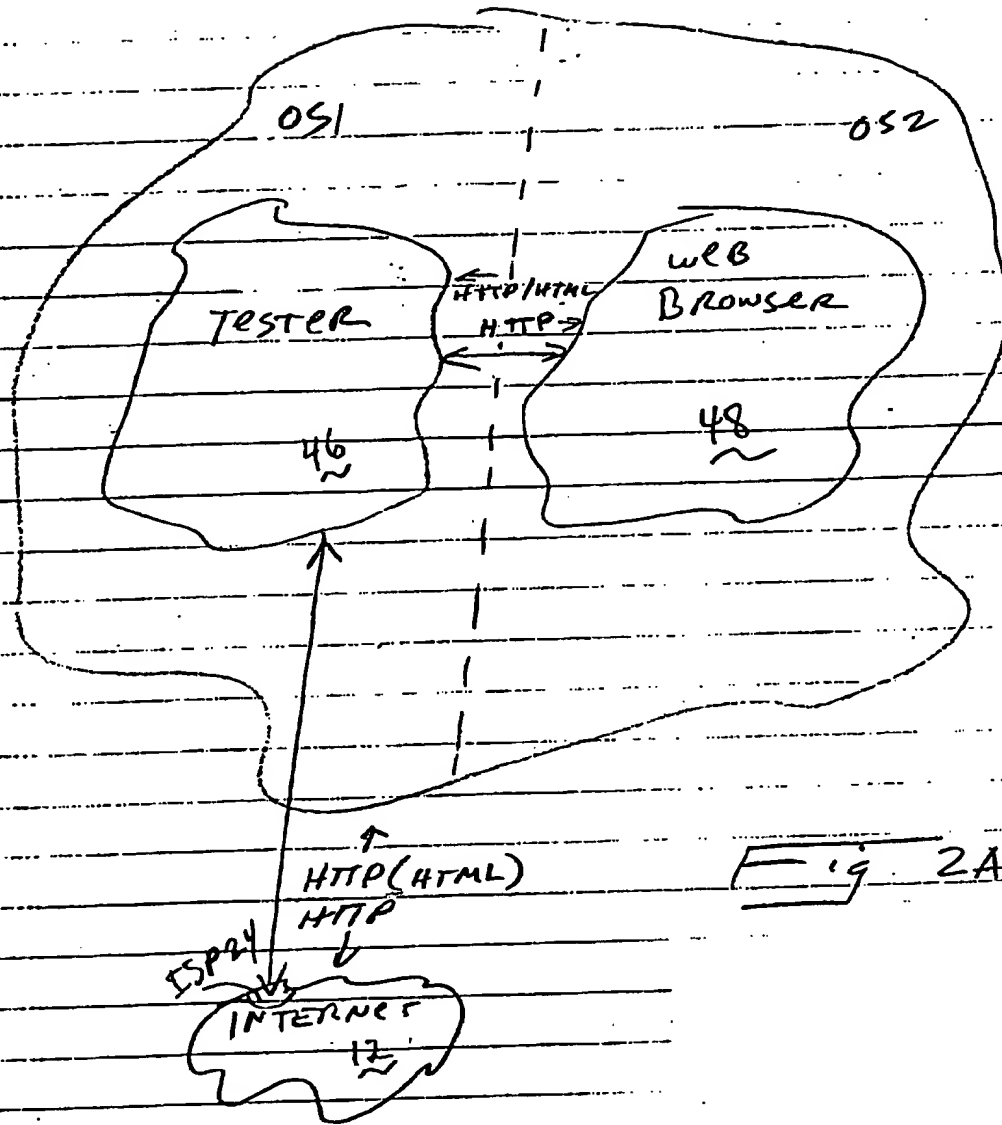 OS1
OS2
TESTER
46
←
HTTP/HTML
HTTP→
WEB
BROWSER
48
↑
HTTP(HTML)
HTTP
↓
ISP24
INTERNET
12
Fig. 2A